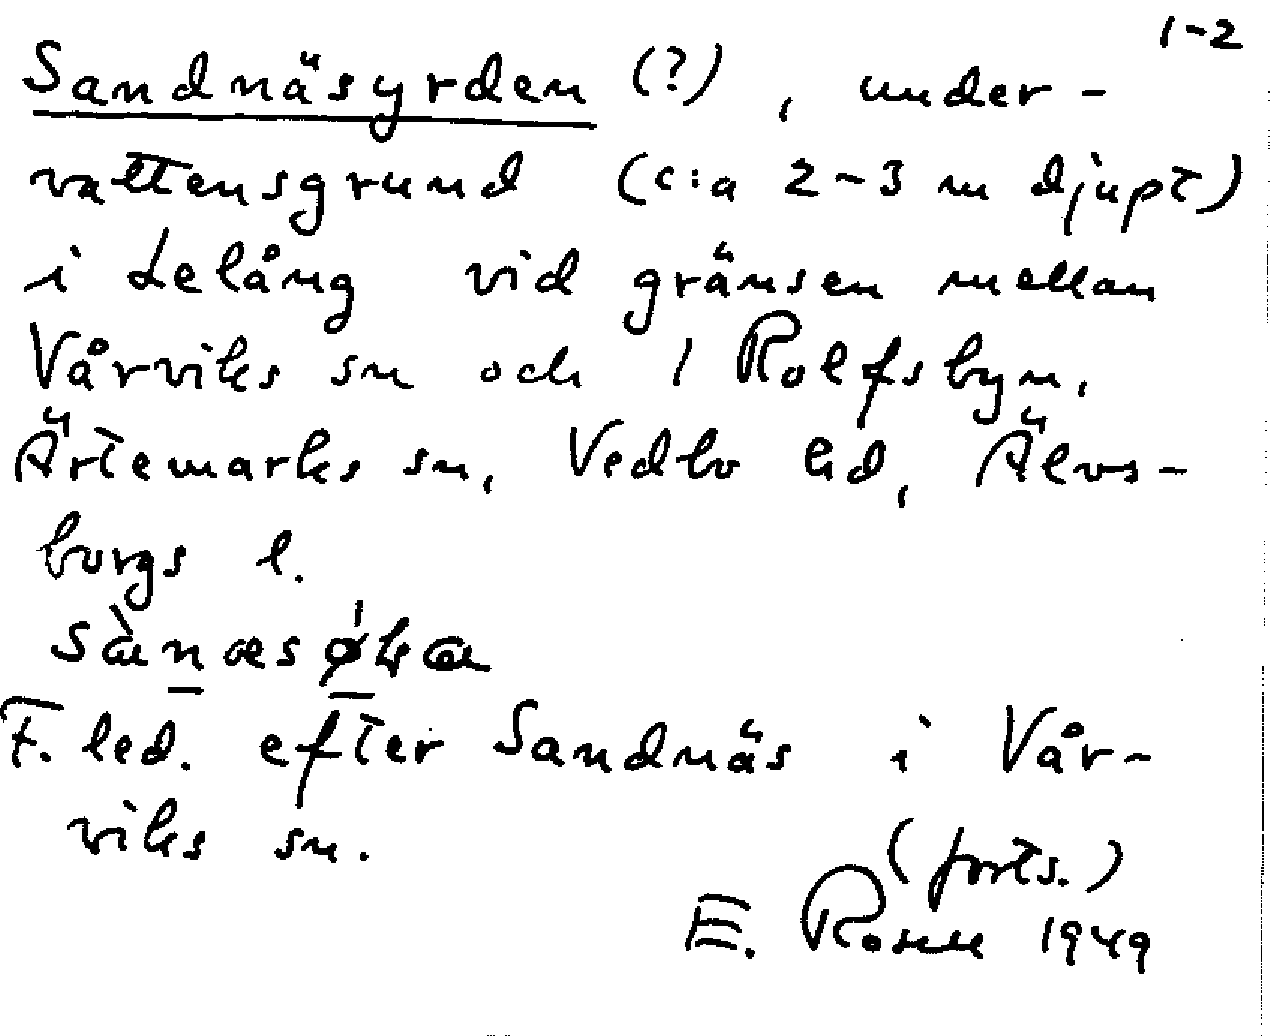 1-2
Sandnäsyrden (?), under-
vattensgrund (c:a 2-3 m djupt)
i Lelång vid gränsen mellan
Vårviks sn och 1 Rolfsbyn,
Ärtemarks sn, Vedbo hd, Älvs-
borgs l.
F. led. efter Sandnäs i Vår-
viks sn.
(forts.)
E. Rosell 1949